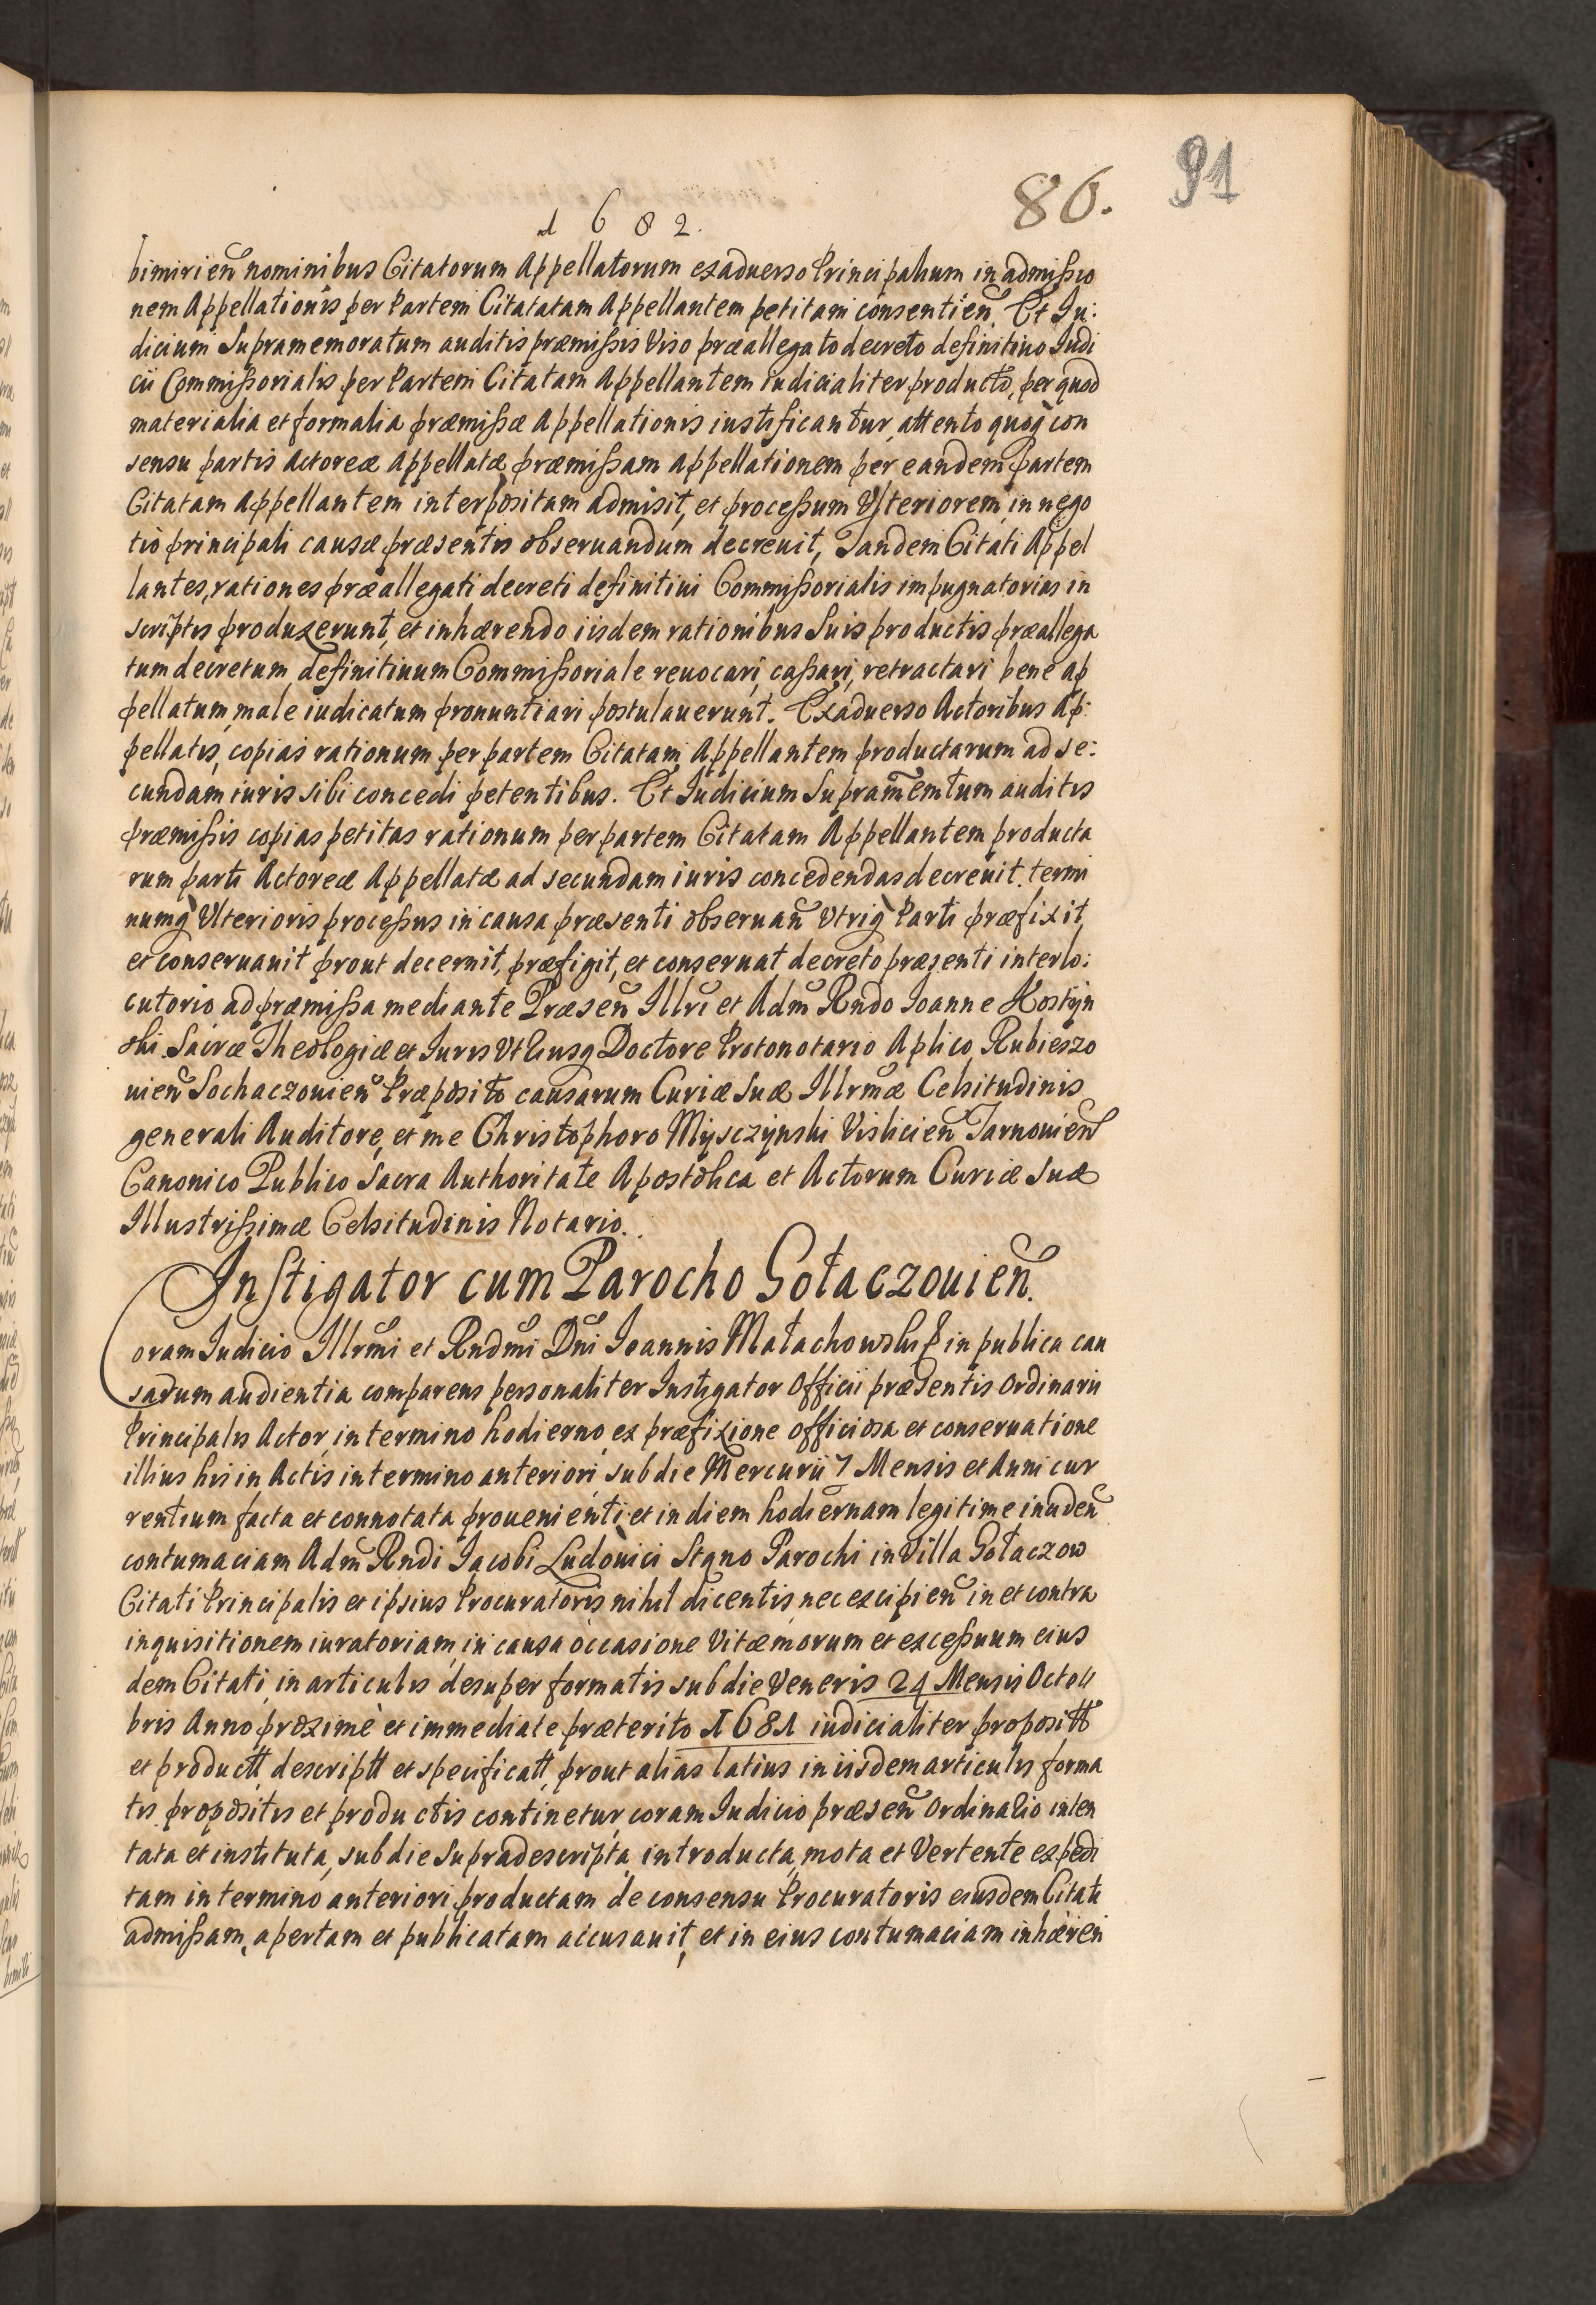 91
86.
1682.
bimirien̄ nominibus Citatorum Appellatorum exaduerso Principalium in admißio
nem Appellationis per Partem Citatatam Appellantem petitam consentien̄. Et Iu:
dicium Supramemoratum auditis præmißis Viso præallegato decreto definitiuo Iudi
cii Commißorialis per Partem Citatam Appellantem iudicialiter producto, per quod
materialia et formalia præmißæ Appellationis iustificantur, attento quoq̀ con
sensu partis Actoreæ Appellatæ præmißam appellationem per eandem partem
Citatam Appellantem interpositam admisit, et proceßum Vlteriorem in nego
tio principali causæ præsentis obseruandum decreuit, Tandem Citati Appel
lantes, rationes præallegati decreti definitiui Commißorialis impugnatorias in
scriptis produxerunt, et inhærendo iisdem rationibus Suis productis præallega
tum decretum definitiuum Commißoriale reuocari, caßari, retractari bene ap
pellatum, male iudicatum pronuntiari postulauerunt. Exaduerso Actoribus Ap:
pellatis, copias rationum per partem Citatam Appellantem productarum ad se:
cundam iuris sibi concedi petentibus. Et Iudicium Supramēmtum auditis
præmißis copias petitas rationum per partem Citatam Appellantem producta
rum parti Actoreæ Appellatæ ad secundam iuris concedendas decreuit. termi
numq̀ Vlterioris proceßus in causa præsenti obseruan̄ Vtriq̀ Parti præfixit,
et conseruauit prout decernit, præfigit, et conseruat decreto præsenti interlo:
cutorio ad præmißa mediante Præsen̄ Illri et Adm̄ Rndo Ioanne Kostÿn
ski Sacræ Theologiæ et Iuris Vtriusq Doctore Protonotario Aplico Rubieszo
uien̄ Sochaczouien̄ Præposito causarum Curiæ Suæ Illrmæ Celsitudinis
generali Auditore, et me Christophoro Mÿsczÿnski Vislicien̄ Tarnouien̄
Canonico Publico Sacra Authoritate Apostolica et Actorum Curiæ Suæ
Illustrißimæ Celsitudinis Notario.
Instigator cum Parocho Gołaczouien̄.
Coram Iudicio Illrm̄i et Rndm̄i Dn̄i Ioannis Małachowski in publica cau
sarum audientia comparens personaliter Instigator Officii præsentis Ordinarii
Principalis Actor, in termino hodierno, ex præfixione officiosa et conseruatione
illius his in Actis in termino anteriori, sub die Mercurii 7 Mensis et Anni cur
rentium facta et connotata prouenienti et in diem hodiernam legitime inciden̄
contumaciam Adm̄ Rndi Iacobi Ludouici Stęno Parochi in Villa Gołaczow
Citati Principalis et ipsius Procuratoris nihil dicentis, nec excipien̄ in et contra
inquisitionem iuratoriam, in causa occasione Vitæ morum et exceßuum eius
dem Citati, in articulis desuper formatis sub die Veneris 24 Mensis Octo
bris Anno proxime et immediate præterito 1681 iudicialiter propositt
et productt, descriptt et specificatt, prout alias latius in iisdem articulis forma
tis propositis et productis continetur, coram Iudicio præsen̄ Ordinario inten
tata et instituta, sub die Supradescripta introducta, mota et Vertente expedi
tam in termino anteriori productam de consensu Procuratoris eiusdem Citati
admißam, apertam et publicatam accusauit, et in eius contumaciam inhæren